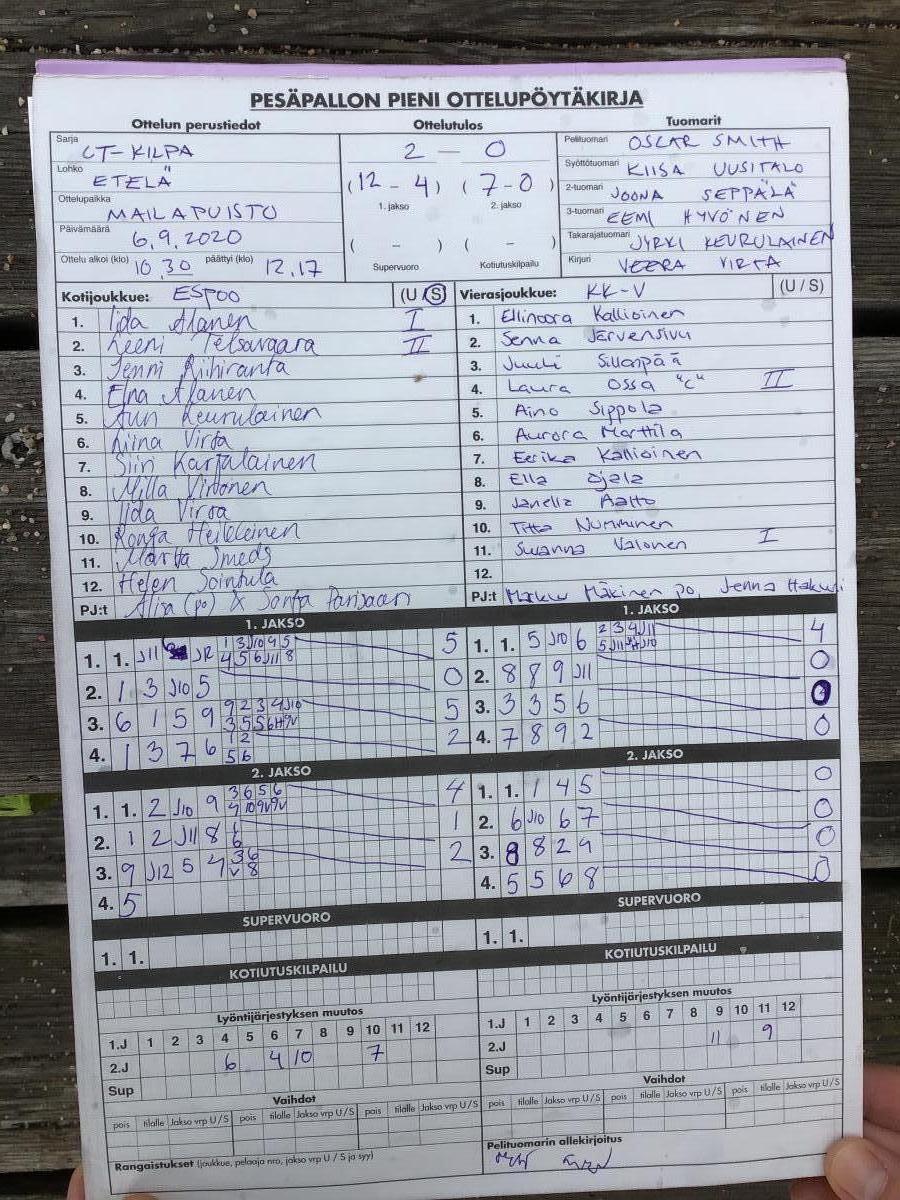 PESÄPALLON PIENI OTTELUPÖYTÄKIRJA
Ottelun perustiedot
Sarja
CT-KILPA
Lohko
ETELÄ
Ottelupaikka
MAILAPUISTO
Päivämäärä
6.9.2020
Ottelu alkoi (klo) 10.30 päättyi (klo) 12.17
Ottelutulos
2 — 0
(12 - 4) (7 - 0)
1. jakso 2. jakso
( - ) ( - )
Supervuoro Kotiutuskilpailu
Tuomarit
Pelituomari OSCAR SMITH
Syöttötuomari KIISA UUSITALO
2-tuomari JOONA SEPPÄLÄ
3-tuomari EEMI HYVÖNEN
Takarajatuomari JYRKI KEURULAINEN
Kirjuri VEERA VIRTA
Kotijoukkue: ESPOO (U/S)
1. Iida Alanen I
2. Leeni II
3. Jenni Riihiranta
4. Elna Alanen
5. Keurulainen
6. Niina Virta
7. Siiri Karjalainen
8. Milla Virtonen
9. Iida Virta
10. Ronja Heikkeinen
11. Martta Smeds
12. Helen Sointula
PJ:t (po) & Sonja
Vierasjoukkue: KK-V (U/S)
1. Ellinoora Kallioinen
2. Senna Järvensivu
3. Juuli Sillanpää
4. Laura Ossa "C" II
5. Aino Sippola
6. Aurora Marttila
7. Eerika Kallioinen
8. Ella Ojala
9. Janella Aalto
10. Titta Numminen
11. Susanna Valonen I
12.
PJ:t Markku Mäkinen po, Jenna
1. JAKSO
1. 1. J11 J12 5
2. 1 3 J10 5 0
3. 6 1 5 9 5
4. 1 3 7 6 1 2 5 6 2
2. JAKSO
1. 1. 2 J10 9 3 6 5 6 4
2. 1 2 J11 8 6 6 1
3. 9 J12 5 4 3 6 V 8 2
4. 5
SUPERVUORO
1. 1.
KOTIUTUSKILPAILU
1. JAKSO
1. 1. 5 J10 6 2 3 4 J11 4
2. 8 8 9 J11 0
3. 3 3 5 6 0
4. 7 8 9 2 0
2. JAKSO
1. 1. 1 4 5 0
2. 6 J10 6 7 0
3. 8 8 2 9 0
4. 5 5 6 8 0
SUPERVUORO
1. 1.
KOTIUTUSKILPAILU
Lyöntijärjestyksen muutos
1.J 1 2 3 4 5 6 7 8 9 10 11 12
2.J 6 4 10 7
Sup
Vaihdot
pois tilalle Jakso vrp U/S pois tilalle Jakso vrp U/S pois tilalle Jakso vrp U/S
Rangaistukset (joukkue, pelaaja nro, jakso vrp U / S ja syy)
Lyöntijärjestyksen muutos
1.J 1 2 3 4 5 6 7 8 9 10 11 12
2.J 11 9
Sup
Vaihdot
pois tilalle Jakso vrp U/S pois tilalle Jakso vrp U/S pois tilalle Jakso vrp U/S
Pelituomarin allekirjoitus